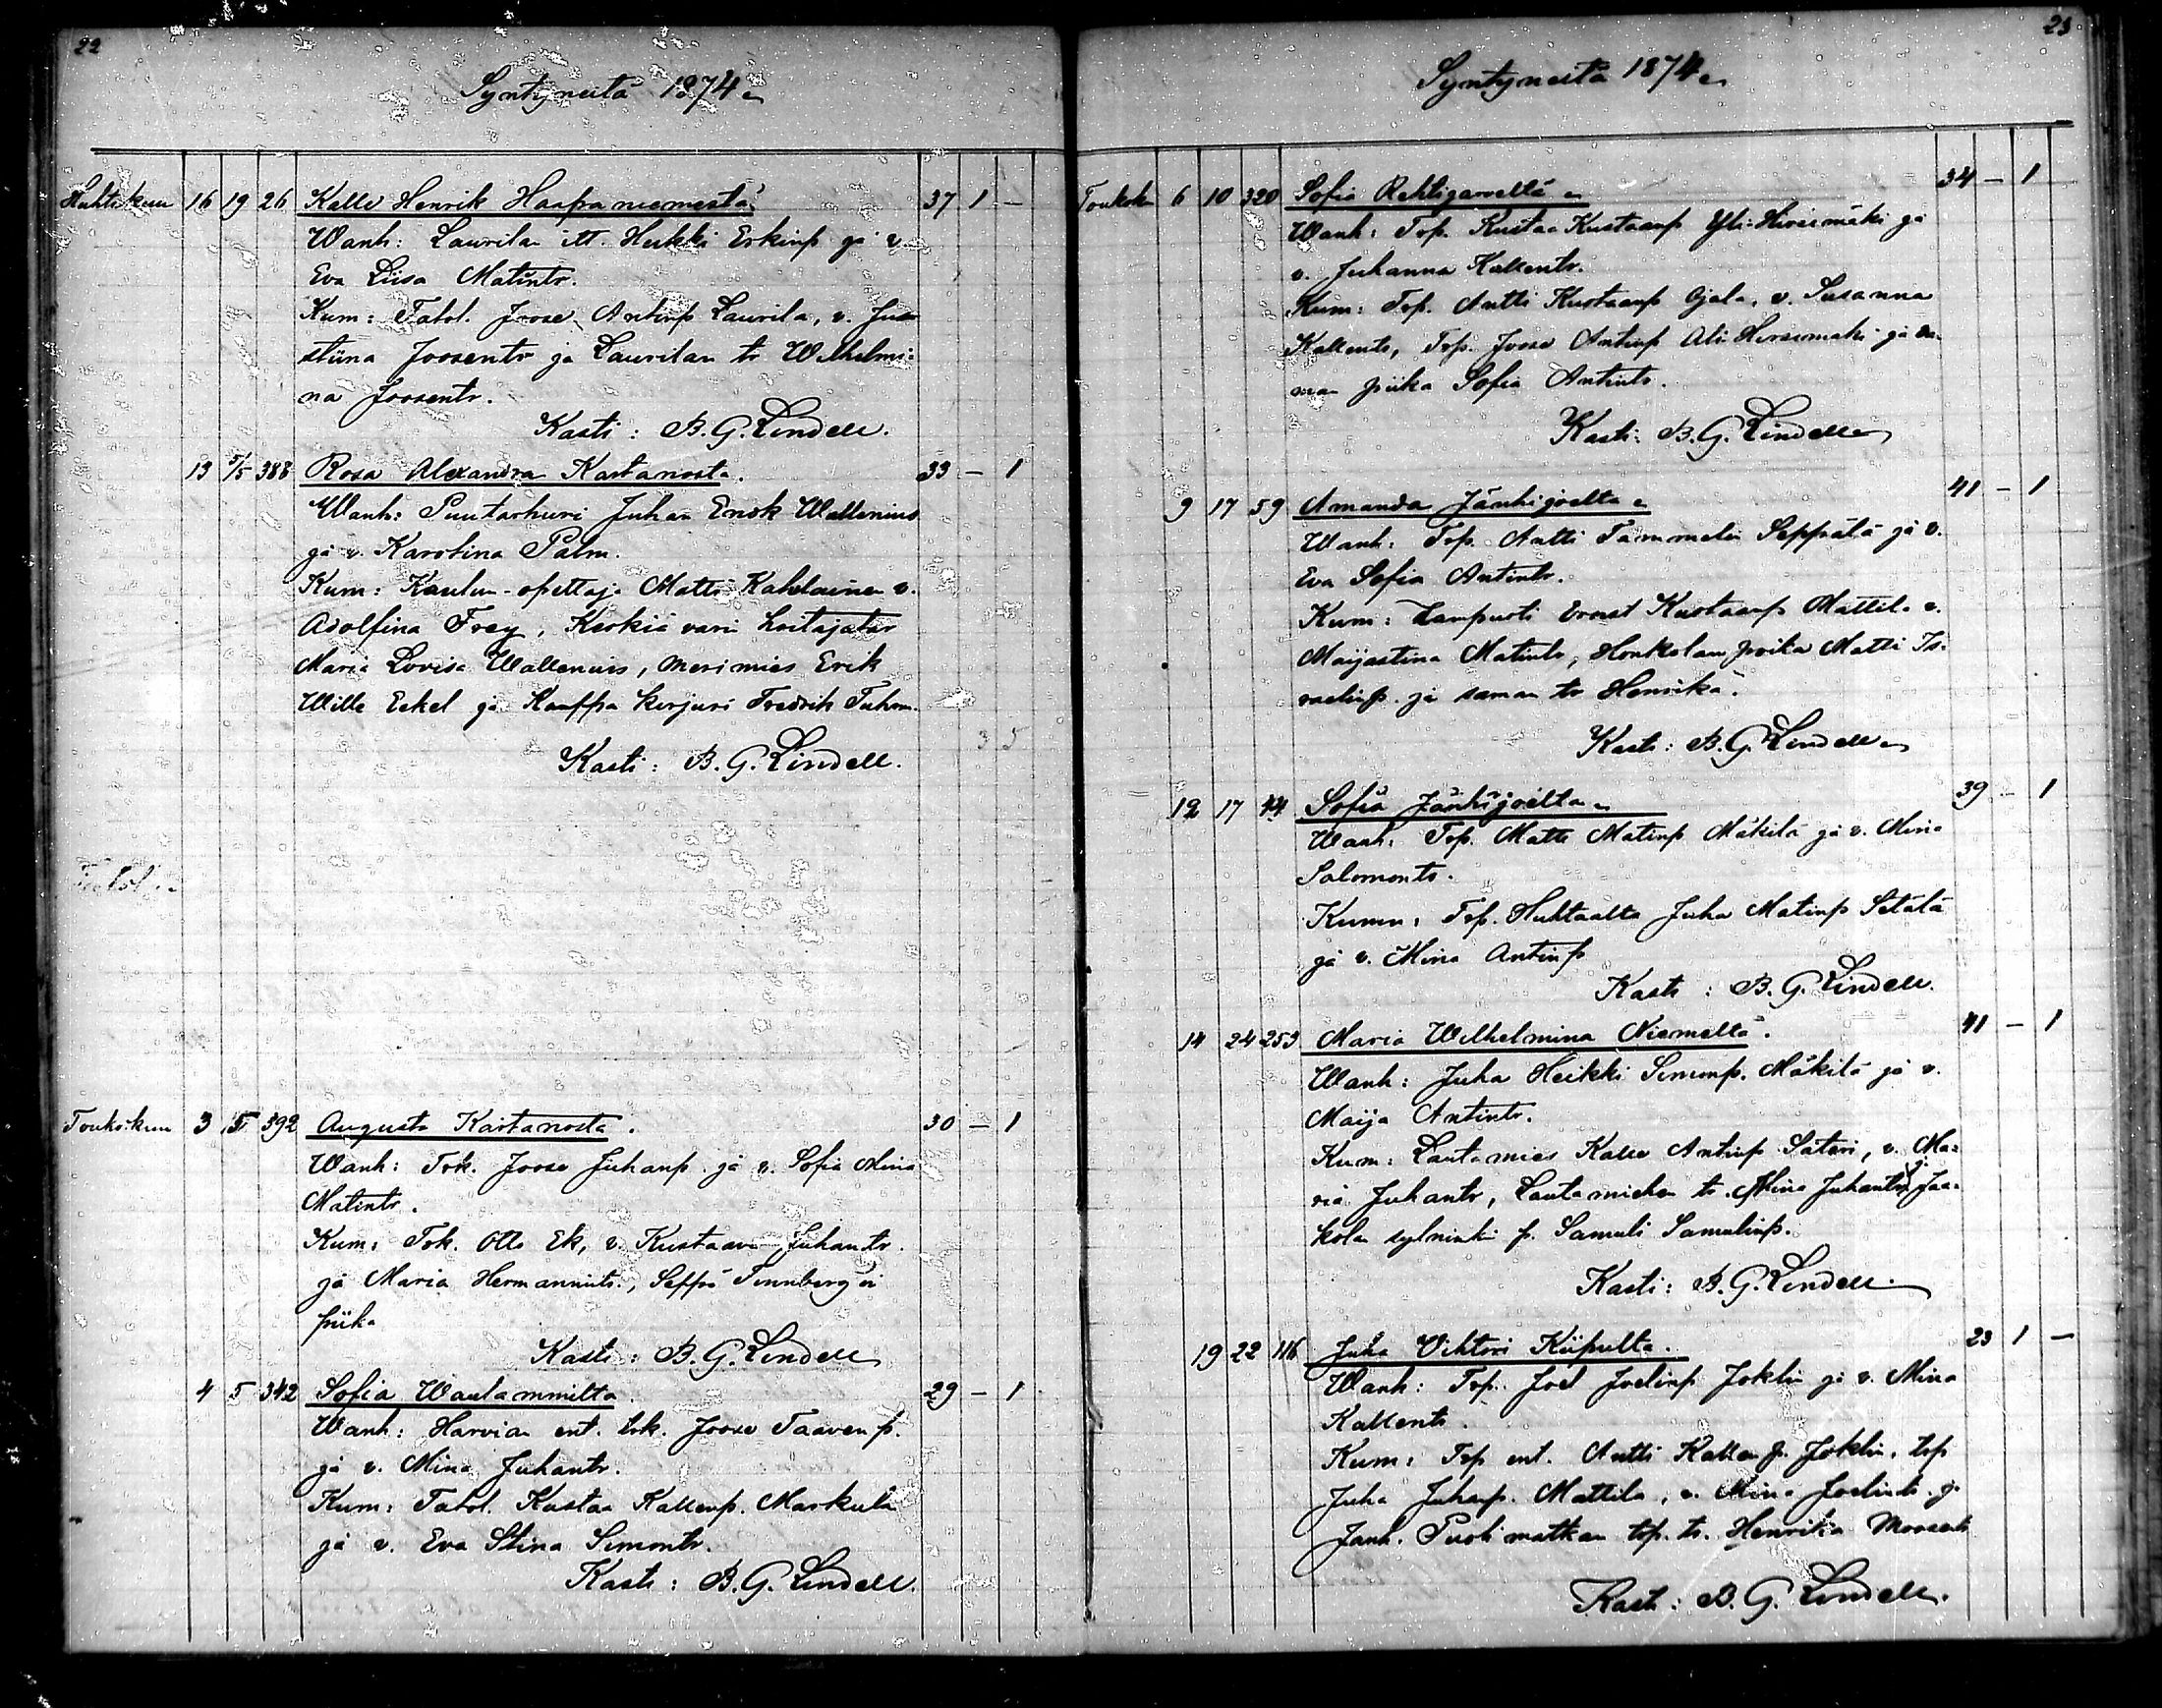 22
Syntyneitä 1874
Huhtikuu 16 19 26 Kalle Henrik Haapaniemestä 37 1 –
Wanh: Laurilan itt. Heikki Erkinp. ja v.
Eva Liisa Matintr.
Kum: Talol. Joose Antinp Laurila, v. Jus-
stiina Joosentr ja Laurilan tr Wilhelmi-
na Joosentr.
Kasti: B. G. Lindell.
13 5/5 388 Rosa Alexandra Kartanosta. 33 – 1
Wanh: Puutarhuri Juhan Erik Wallenius
ja v. Karolina Palm.
Kum: Koulun-opettaja Matti Kahelainen v.
Adolfina Frey,
Maria Lovisa Wallenius, Merimies Erik
Wille Eekel ja Kauppa kirjuri Fredrik
35
Kasti: B. G. Lindell.
Toukokuu 3 5 392 Augusta Kartanosta. 30 – 1
Wanh: Trk. Joose Juhanp. ja v. Sofia Mina
Matintr.
Kum: Trk. Otto Ek, v. Kustaava Juhantr.
ja Maria Hermannintr., Seppä Tennberg in
piika
Kasti: B. G. Lindell
4 5 342 Sofia Wautammilta. 29 – 1
Wanh: Harvian ent. trk. Joose Taavenp.
ja v. Mina Juhantr.
Kum: Talol. Kustaa Kallenp. Markula
ja v. Eva Stina Simontr.
Kasti: B. G. Lindell.
23
Syntyneitä 1874
Toukok 6 10 320 Sofia Rehtijärveltä 34 – 1
Wanh: Trp. Kustaa Kustaanp Yli-Hirsimäki ja
v. Juhanna Kallentr.
Kum: Trp. Antti Kustaanp Ojala, v. Susanna
Kallentr, Trp. Joose Antinp Ali-Hirsimäki ja sa-
man piika Sofia Antintr.
Kasti: B. G. Lindell
9 17 59 Amanda Jänhijoelta 41 – 1
Wanh: Trp. Antti Tammelin Seppälä ja v.
Eva Sofia Antintr.
Kum: Lampuoti Ernst Kustaanp Mattila v.
Maijastina Matintr, Honkolan poika Matti Is-
raelinp. ja saman tr Henrika.
Kasti: B. G. Lindell
12 17 44 Sofia Jänhijoelta 39 – 1
Wanh: Trp. Matti Matinp Mäkilä ja v. Mina
Salomontr.
Kumm: Trp. Huhtaalta Juha Matinp Setälä
ja v. Mina Antinp
Kasti: B. G. Lindell.
14 24 253 Maria Wilhelmina Niemeltä. 41 – 1
Wanh: Juha Heikki Simonp. Mäkilä ja v.
Maija Antintr.
Kum: Lautamies Kalle Antinp Sateri, v. Ma-
ria Juhantr, Lautamiehen tr. Mina Juhantr ja Jaa-
kola p. Samuli Samulinp.
Kasti: B. G. Lindell.
19 22 116 Juha Vihtori Kiipulta. 23 1 –
Wanh: Trp. Joel Joelinp Joklin ja v. Mina
Kallentr.
Kum: Trp ent. Antti Kallenp. Joklin, trp
Juha Juhanp. Mattila, v. Mina Joelintr. ja
Janh. Puolimatkan trp. tr. Henrika Moosentr
Kast: B. G. Lindell.